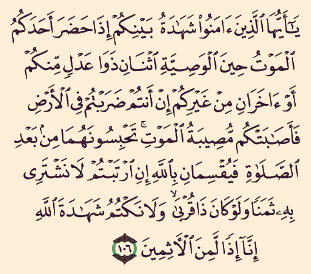 يَـٰٓأَيُّهَا ٱلَّذِينَ ءَامَنُوا۟ شَهَـٰدَةُ بَيْنِكُمْ إِذَا حَضَرَ أَحَدَكُمُ
ٱلْمَوْتُ حِينَ ٱلْوَصِيَّةِ ٱثْنَانِ ذَوَا عَدْلٍ مِّنكُمْ
أَوْ ءَاخَرَانِ مِنْ غَيْرِكُمْ إِنْ أَنتُمْ ضَرَبْتُمْ فِى ٱلْأَرْضِ
فَأَصَـٰبَتْكُم مُّصِيبَةُ ٱلْمَوْتِ ۚ تَحْبِسُونَهُمَا مِنۢ بَعْدِ
ٱلصَّلَوٰةِ فَيُقْسِمَانِ بِٱللَّهِ إِنِ ٱرْتَبْتُمْ لَا نَشْتَرِى
بِهِۦ ثَمَنًا وَلَوْ كَانَ ذَا قُرْبَىٰ ۙ وَلَا نَكْتُمُ شَهَـٰدَةَ ٱللَّهِ
إِنَّآ إِذًا لَّمِنَ ٱلْـَٔاثِمِينَ ١٠٦